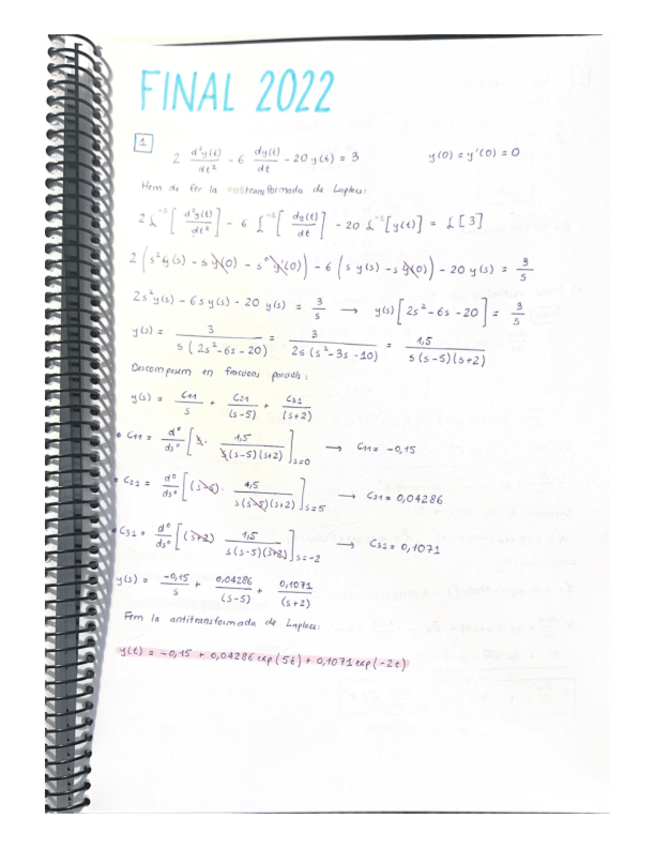 FINAL 2022
1
2 d²y(t)/dt² - 6 dy(t)/dt - 20 y(t) = 3 y(0) = y'(0) = 0
Hem de fer la antitransformada de Laplace:
2 £⁻¹[d²y(t)/dt²] - 6 £⁻¹[dy(t)/dt] - 20 £⁻¹[y(t)] = £[3]
2 (s²y(s) - s y(0) - s⁰ y'(0)) - 6 (s y(s) - s y(0)) - 20 y(s) = 3/s
2s²y(s) - 6 s y(s) - 20 y(s) = 3/s → y(s)[2s² - 6s - 20] = 3/s
y(s) = 3/(s(2s² - 6s - 20)) = 3/(2s(s² - 3s - 10)) = 1,5/(s(s-5)(s+2))
Descomposem en fraccions parcials:
y(s) = C11/s + C21/(s-5) + C31/(s+2)
• C11 = d⁰/ds⁰ [s · 1,5/(s(s-5)(s+2))]s=0 → C11 = -0,15
• C21 = d⁰/ds⁰ [(s-5) · 1,5/(s(s-5)(s+2))]s=5 → C21 = 0,04286
• C31 = d⁰/ds⁰ [(s+2) 1,5/(s(s-5)(s+2))]s=-2 → C31 = 0,1071
y(s) = -0,15/s + 0,04286/(s-5) + 0,1071/(s+2)
Fem la antitransformada de Laplace:
y(t) = -0,15 + 0,04286 exp(5t) + 0,1071 exp(-2t)